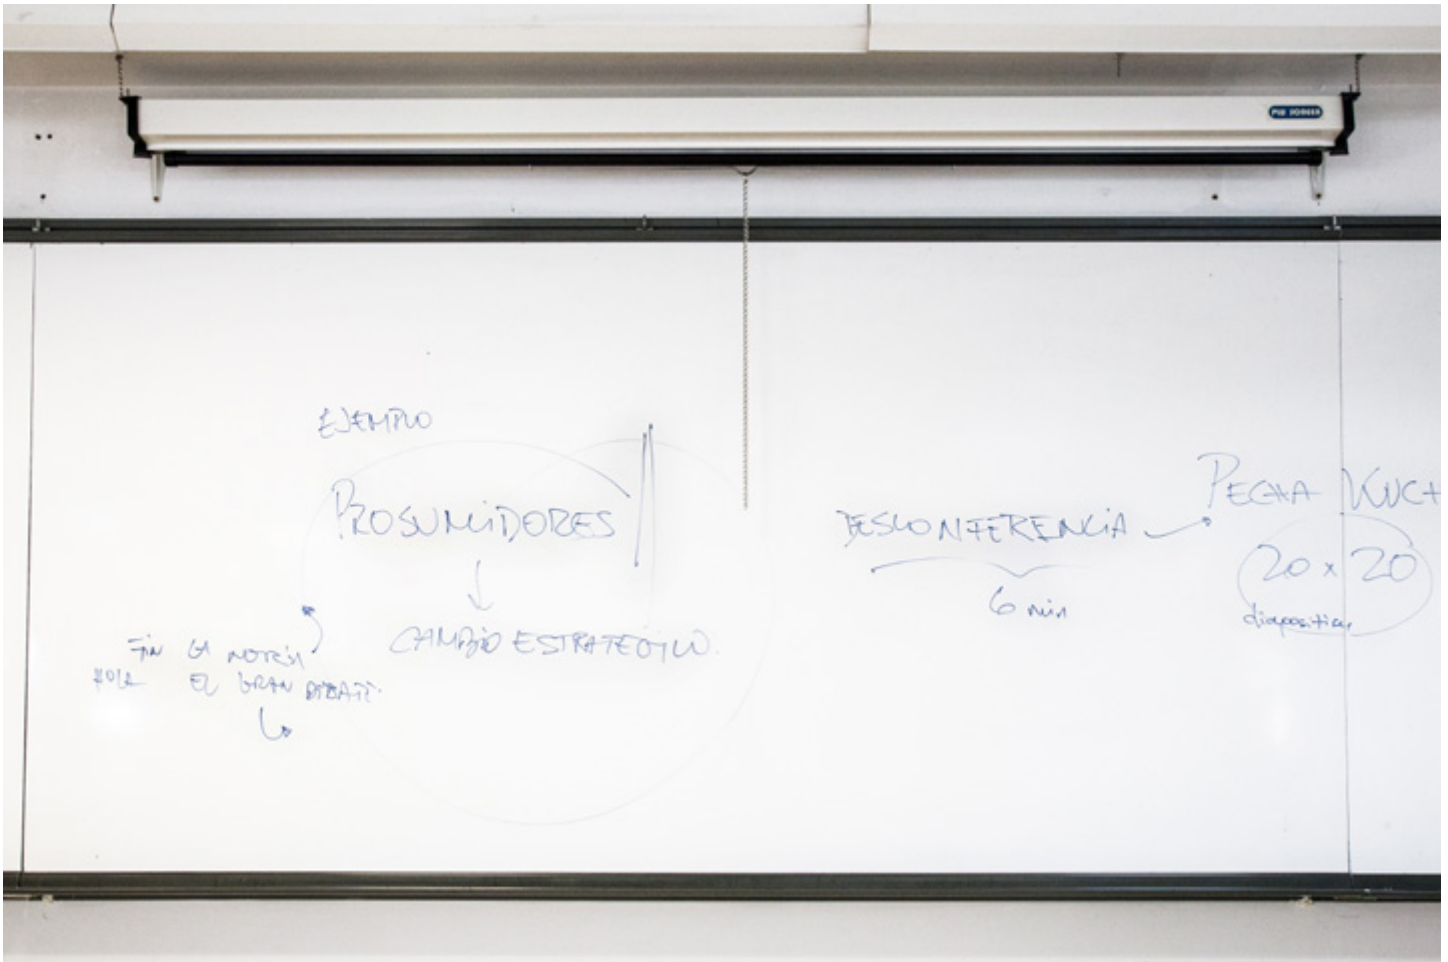 EJEMPLO
PROSUMIDORES
CAMBIO ESTRATEGICO.
FIN LA NOTICIA
HOLA EL GRAN DEBATE.
DESCONFERENCIA
6 min
PECHA KUCH
20 x 20